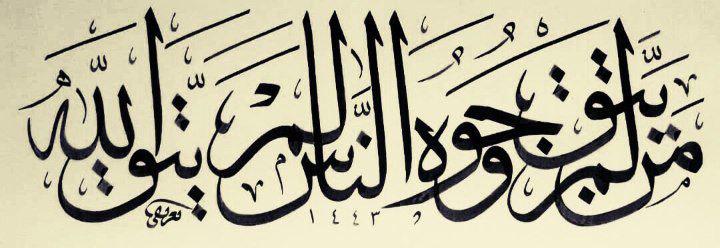 من لم يتق وجوه الناس لم يتق الله
١٤٤٣ه